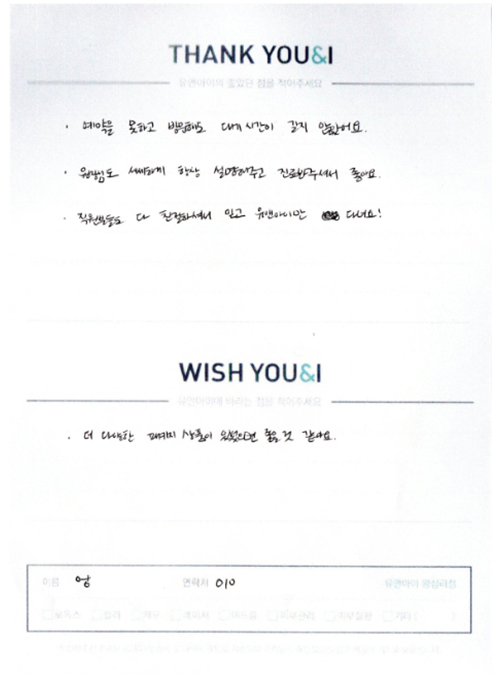 THANK YOU&I
유앤아이의 좋았던 점을 적어주세요
· 예약을 못하고 방문해도 대기시간이 길지 않았어요.
· 원장님도 세세하게 항상 설명해주고 진료봐주셔서 좋아요.
· 직원분들도 다 친절하셔서 믿고 유앤아이만 다녀요!
WISH YOU&I
유앤아이에 바라는 점을 적어주세요
· 더 다양한 패키지 상품이 있었으면 좋을 것 같아요.
이름 엉 연락처 010 유앤아이 왕십리점
보톡스 필러 제모 레이저 리프팅 피부관리 기타 ( )